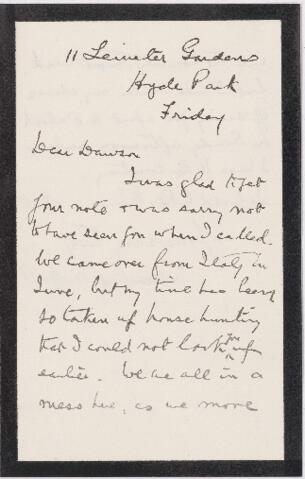 11 Leinster Gardens
Hyde Park
Friday
Dear Dawson
I was glad to get
your note & was sorry not
to have seen you when I called.
We came over from Italy in
June, but my time has been
so taken up house hunting
that I could not look you up
earlier. We are all in a
mess here, as we move